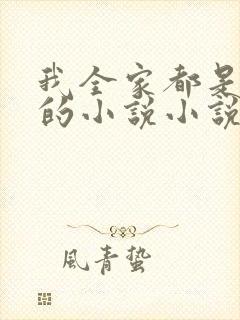 我全家都是
的小說小說
風青蟄